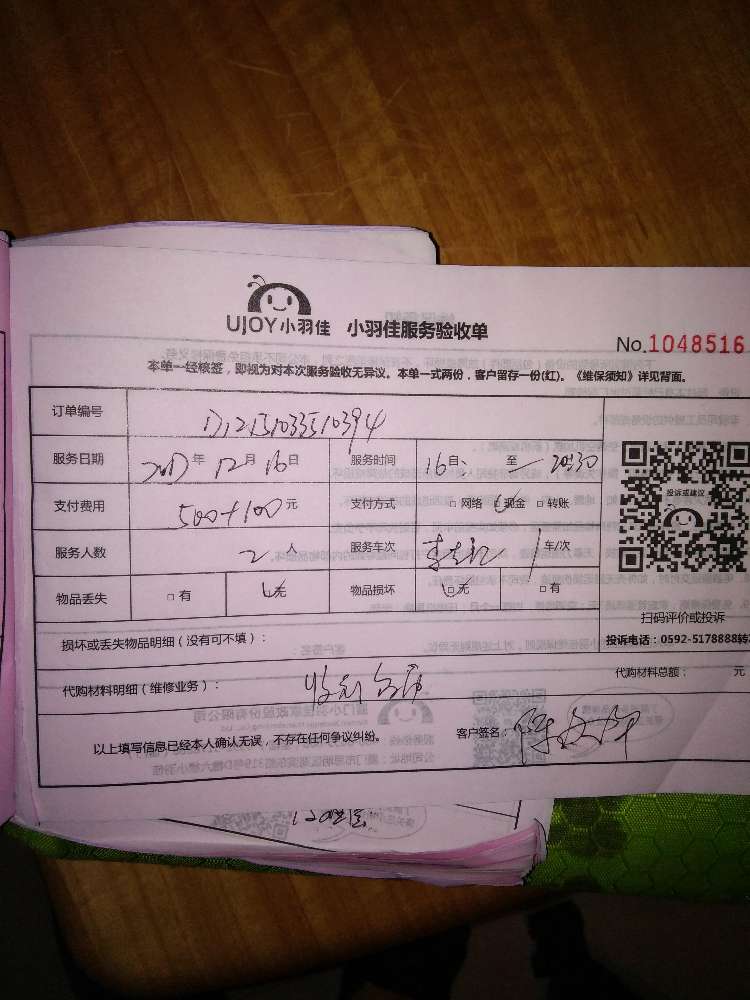 UJOY小羽佳 小羽佳服务验收单
No.1048516
本单一经核签，即视为对本次服务验收无异议。本单一式两份，客户留存一份(红)。《维保须知》详见背面。
订单编号
服务日期 2017年 12月 16日 服务时间 16日: 至 20:30
支付费用 500+100元 支付方式 □网络 现金 □转账
投诉或建议
服务人数 2人 服务车次 1车/次
物品丢失 □有 无 物品损坏 无 □有
扫码评价或投诉
投诉电话：0592-5178888转
损坏或丢失物品明细（没有可不填）：
代购材料明细（维修业务）： 代购材料总额： 元
以上填写信息已经本人确认无误，不存在任何争议纠纷。 客户签名：